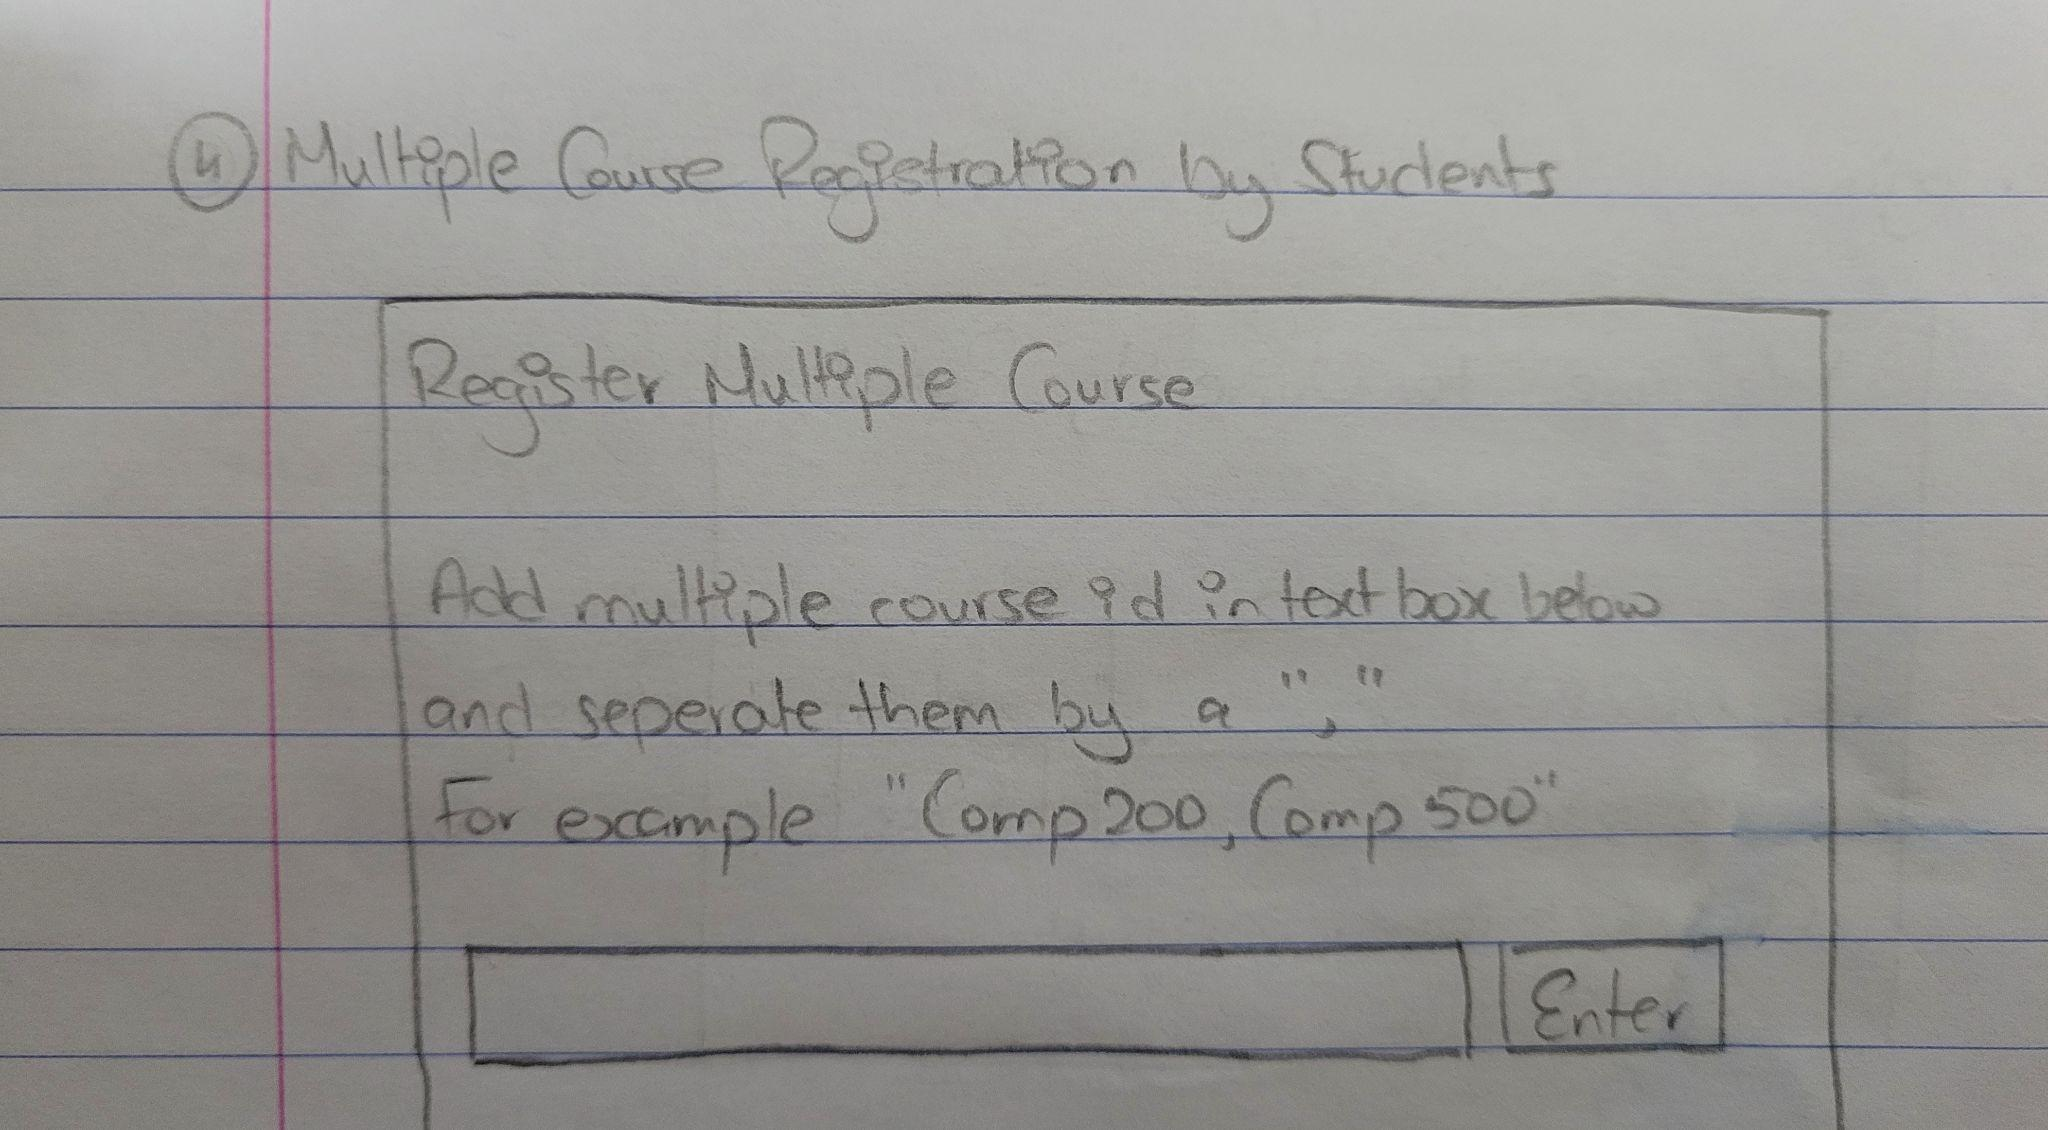 4 Multiple Course Registration by Students
Register Multiple Course
Add multiple course id in text box below
and seperate them by a ","
For example "Comp 200, Comp 500"
Enter